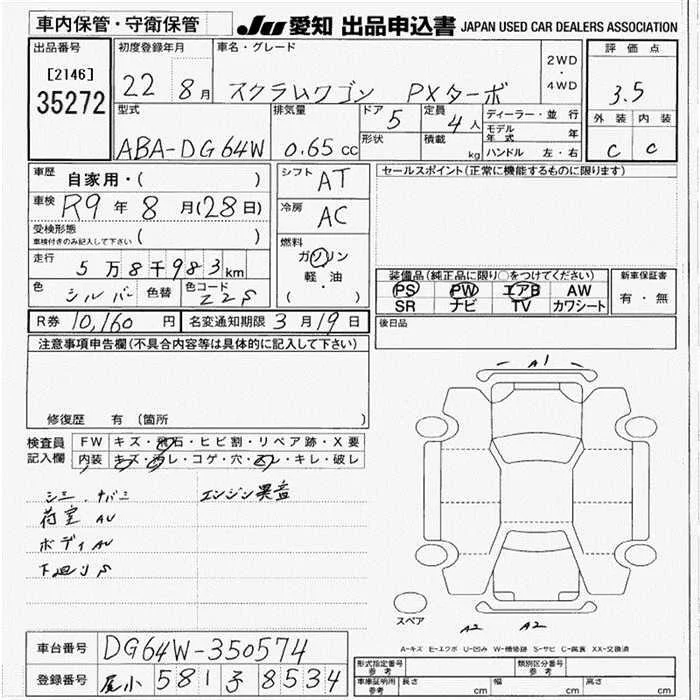 車内保管・守衛保管 JU 愛知 出品申込書 JAPAN USED CAR DEALERS ASSOCIATION
出品番号 初度登録年月 車名・グレード 2WD・4WD 評価点
[2146] 35272 22 8月 スクラムワゴン PXターボ 3.5
型式 排気量 ドア 5 定員 4人 ディーラー・並行 外装 内装
ABA-DG64W 0.65cc 形状 積載 kg モデル年式 年 C C
ハンドル 左・右
車歴 自家用・( ) シフト AT セールスポイント(正常に機能するものに限ります)
車検 R9年 8月(28日) 冷房 AC
受検形態 ( )
車検付きのみ記入して下さい
燃料 ガソリン 軽・油 ( ・ )
走行 5万8千983km
色 シルバー 色替 色コード Z2S
装備品(純正品に限り○をつけてください) 新車保証書
PS PW エアB AW 有・無
SR ナビ TV カワシート
R券 10,160円 名変通知期限 3月19日 後日品
注意事項申告欄(不具合内容等は具体的に記入して下さい)
修復歴 有 (箇所 )
A1
検査員記入欄 FW キズ・飛石・ヒビ割・リペア跡・X要
内装 キズ・汚レ・コゲ・穴・スレ・キレ・破レ
シミ・ナバミ エンジン異音
荷室 AU
ボディ AU
下廻り S
スペア
A2 A2
A-キズ E-エクボ U-凹み W-補修跡 S-サビ C-腐食 XX-交換済
車台番号 DG64W-350574
登録番号 尾小 581 る 8534
形式指定番号 参考 類別区分番号 参考
車庫証明用 参考 長さ cm 幅 cm 高さ cm